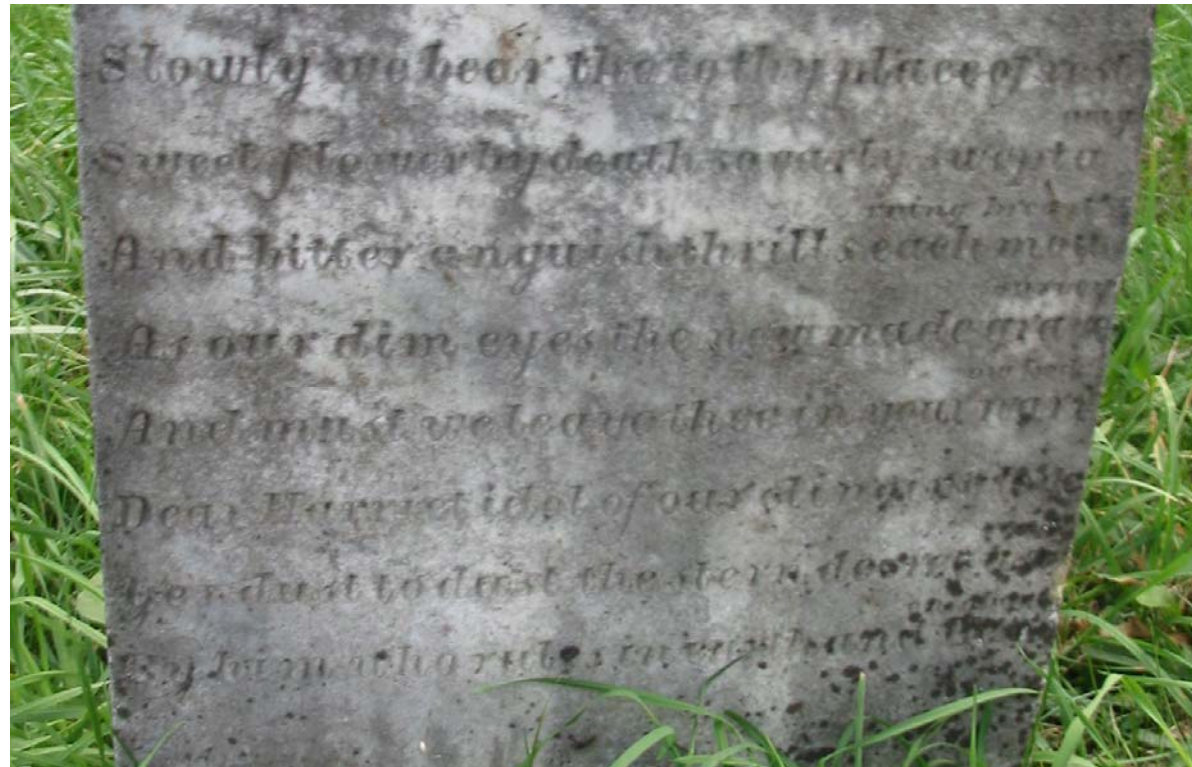 Slowly we bear the to thy place of rest
away
Sweet flower by death so early swept a
And bitter anguish thrills each mou
survey
As our dim eyes the new made grave
And must we leave thee in your
Dear Harriet idol of our
Yes dust to dust the stern decree
By him who rules in earth and